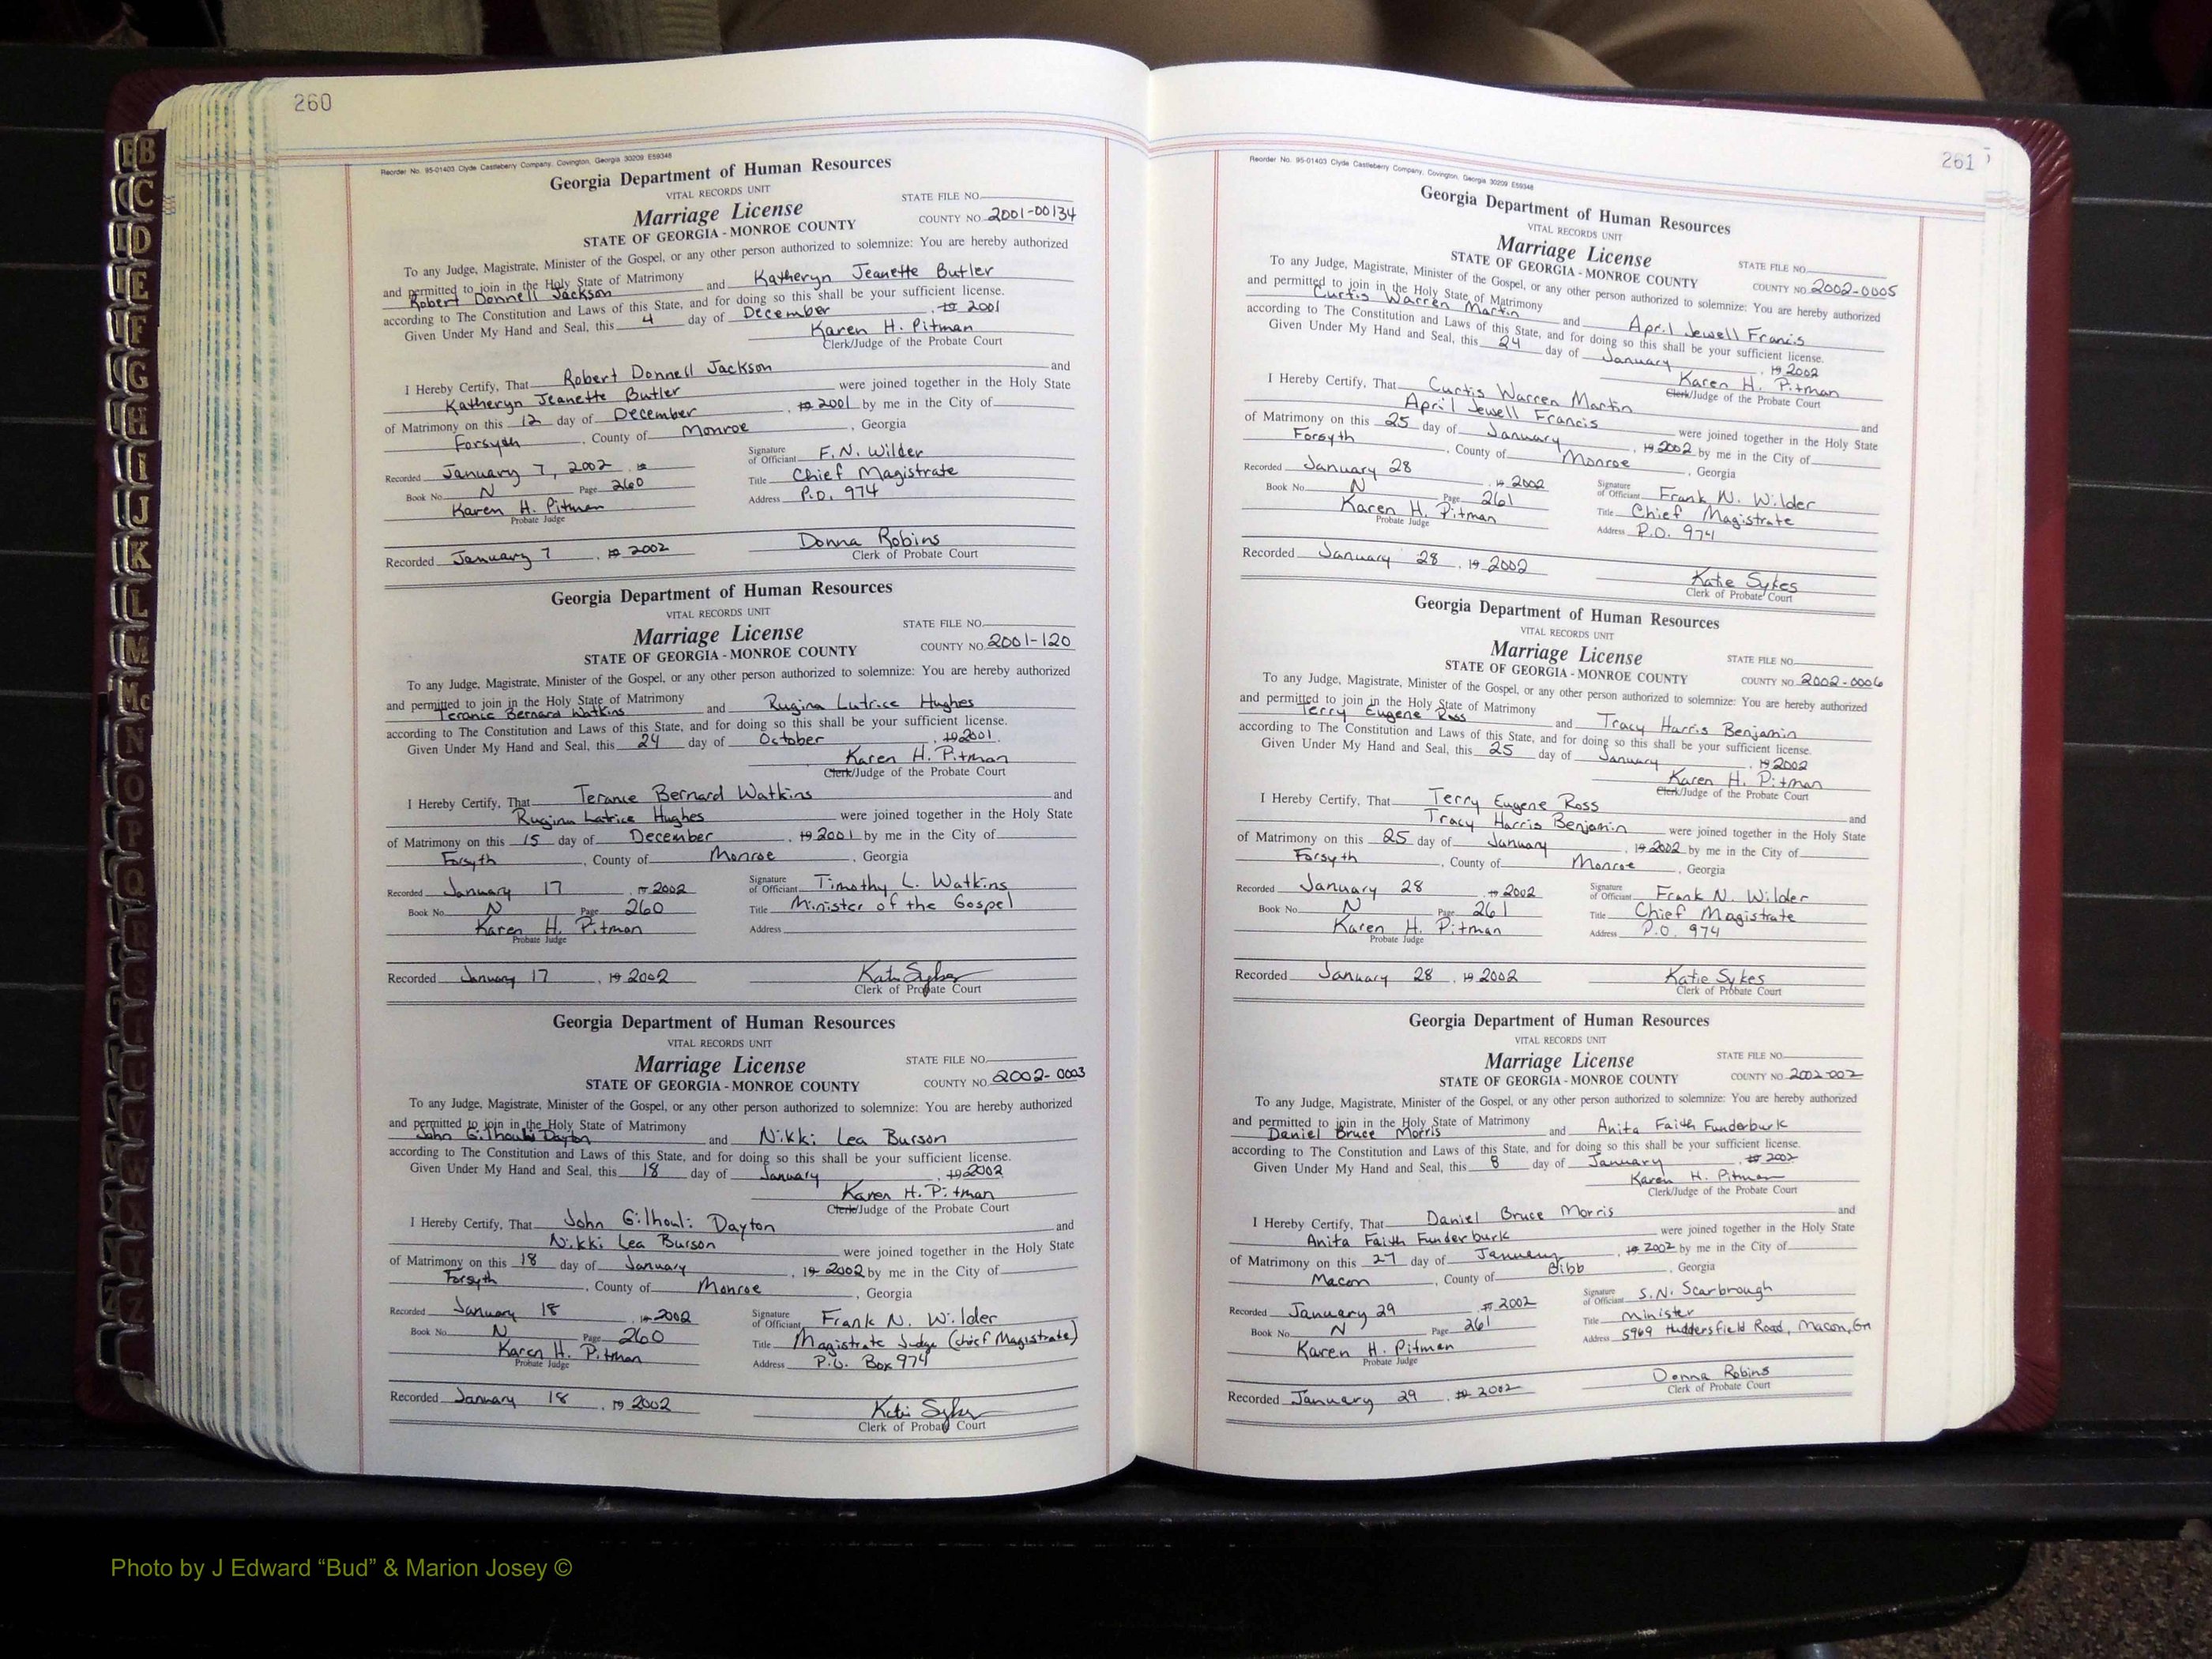 260
Reorder No. 95-01403 Clyde Castleberry Company, Covington, Georgia 30209 E59348
Georgia Department of Human Resources
VITAL RECORDS UNIT
STATE FILE NO.
Marriage License
COUNTY NO. 2001-00134
STATE OF GEORGIA - MONROE COUNTY
To any Judge, Magistrate, Minister of the Gospel, or any other person authorized to solemnize: You are hereby authorized
and permitted to join in the Holy State of Matrimony
Robert Donnell Jackson and Katheryn Jeanette Butler
according to The Constitution and Laws of this State, and for doing so this shall be your sufficient license.
Given Under My Hand and Seal, this 4 day of December, 19 2001
Karen H. Pitman
Clerk/Judge of the Probate Court
I Hereby Certify, That Robert Donnell Jackson and
Katheryn Jeanette Butler were joined together in the Holy State
of Matrimony on this 12 day of December, 19 2001 by me in the City of
Forsyth, County of Monroe, Georgia
Signature of Officiant F.N. Wilder
Recorded January 7, 2002, 19
Title Chief Magistrate
Book No. N Page 260
Address P.O. 974
Karen H. Pitman
Probate Judge
Donna Robins
Recorded January 7, 19 2002 Clerk of Probate Court
Georgia Department of Human Resources
VITAL RECORDS UNIT
STATE FILE NO.
Marriage License
COUNTY NO. 2001-120
STATE OF GEORGIA - MONROE COUNTY
To any Judge, Magistrate, Minister of the Gospel, or any other person authorized to solemnize: You are hereby authorized
and permitted to join in the Holy State of Matrimony
Terance Bernard Watkins and Rugina Lutrice Hughes
according to The Constitution and Laws of this State, and for doing so this shall be your sufficient license.
Given Under My Hand and Seal, this 24 day of October, 19 2001
Karen H. Pitman
Clerk/Judge of the Probate Court
I Hereby Certify, That Terance Bernard Watkins and
Rugina Latrice Hughes were joined together in the Holy State
of Matrimony on this 15 day of December, 19 2001 by me in the City of
Forsyth, County of Monroe, Georgia
Signature of Officiant Timothy L. Watkins
Recorded January 17, 19 2002
Title Minister of the Gospel
Book No. N Page 260
Address
Karen H. Pitman
Probate Judge
Katie Sykes
Recorded January 17, 19 2002 Clerk of Probate Court
Georgia Department of Human Resources
VITAL RECORDS UNIT
STATE FILE NO.
Marriage License
COUNTY NO. 2002-0003
STATE OF GEORGIA - MONROE COUNTY
To any Judge, Magistrate, Minister of the Gospel, or any other person authorized to solemnize: You are hereby authorized
and permitted to join in the Holy State of Matrimony
John Gilhouli Dayton and Nikki Lea Burson
according to The Constitution and Laws of this State, and for doing so this shall be your sufficient license.
Given Under My Hand and Seal, this 18 day of January, 19 2002
Karen H. Pitman
Clerk/Judge of the Probate Court
I Hereby Certify, That John Gilhouli Dayton and
Nikki Lea Burson were joined together in the Holy State
of Matrimony on this 18 day of January, 19 2002 by me in the City of
Forsyth, County of Monroe, Georgia
Signature of Officiant Frank N. Wilder
Recorded January 18, 19 2002
Title Magistrate Judge (chief Magistrate)
Book No. N Page 260
Address P.O. Box 974
Karen H. Pitman
Probate Judge
Katie Sykes
Recorded January 18, 19 2002 Clerk of Probate Court
261
Reorder No. 95-01403 Clyde Castleberry Company, Covington, Georgia 30209 E59348
Georgia Department of Human Resources
VITAL RECORDS UNIT
STATE FILE NO.
Marriage License
COUNTY NO. 2002-0005
STATE OF GEORGIA - MONROE COUNTY
To any Judge, Magistrate, Minister of the Gospel, or any other person authorized to solemnize: You are hereby authorized
and permitted to join in the Holy State of Matrimony
Curtis Warren Martin and April Jewell Francis
according to The Constitution and Laws of this State, and for doing so this shall be your sufficient license.
Given Under My Hand and Seal, this 24 day of January, 19 2002
Karen H. Pitman
Clerk/Judge of the Probate Court
I Hereby Certify, That Curtis Warren Martin and
April Jewell Francis were joined together in the Holy State
of Matrimony on this 25 day of January, 19 2002 by me in the City of
Forsyth, County of Monroe, Georgia
Signature of Officiant Frank N. Wilder
Recorded January 28, 19 2002
Title Chief Magistrate
Book No. N Page 261
Address P.O. 974
Karen H. Pitman
Probate Judge
Katie Sykes
Recorded January 28, 19 2002 Clerk of Probate Court
Georgia Department of Human Resources
VITAL RECORDS UNIT
STATE FILE NO.
Marriage License
COUNTY NO. 2002-0006
STATE OF GEORGIA - MONROE COUNTY
To any Judge, Magistrate, Minister of the Gospel, or any other person authorized to solemnize: You are hereby authorized
and permitted to join in the Holy State of Matrimony
Terry Eugene Ross and Tracy Harris Benjamin
according to The Constitution and Laws of this State, and for doing so this shall be your sufficient license.
Given Under My Hand and Seal, this 25 day of January, 19 2002
Karen H. Pitman
Clerk/Judge of the Probate Court
I Hereby Certify, That Terry Eugene Ross and
Tracy Harris Benjamin were joined together in the Holy State
of Matrimony on this 25 day of January, 19 2002 by me in the City of
Forsyth, County of Monroe, Georgia
Signature of Officiant Frank N. Wilder
Recorded January 28, 19 2002
Title Chief Magistrate
Book No. N Page 261
Address P.O. 974
Karen H. Pitman
Probate Judge
Katie Sykes
Recorded January 28, 19 2002 Clerk of Probate Court
Georgia Department of Human Resources
VITAL RECORDS UNIT
STATE FILE NO.
Marriage License
COUNTY NO. 2002-002
STATE OF GEORGIA - MONROE COUNTY
To any Judge, Magistrate, Minister of the Gospel, or any other person authorized to solemnize: You are hereby authorized
and permitted to join in the Holy State of Matrimony
Daniel Bruce Morris and Anita Faith Funderburk
according to The Constitution and Laws of this State, and for doing so this shall be your sufficient license.
Given Under My Hand and Seal, this 8 day of January, 19 2002
Karen H. Pitman
Clerk/Judge of the Probate Court
I Hereby Certify, That Daniel Bruce Morris and
Anita Faith Funderburk were joined together in the Holy State
of Matrimony on this 27 day of January, 19 2002 by me in the City of
Macon, County of Bibb, Georgia
Signature of Officiant S.N. Scarbrough
Recorded January 29, 19 2002
Title Minister
Book No. N Page 261
Address 5969 Huddersfield Road, Macon, GA
Karen H. Pitman
Probate Judge
Donna Robins
Recorded January 29, 19 2002 Clerk of Probate Court
B
C
D
E
F
G
H
I
J
K
L
M
Mc
N
O
P
Q
R
S
T
U
V
W
X
Y
Z
Photo by J Edward “Bud” & Marion Josey ©